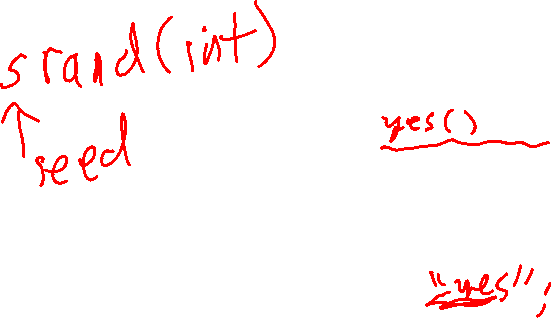 srand(int)
seed
yes()
"yes";